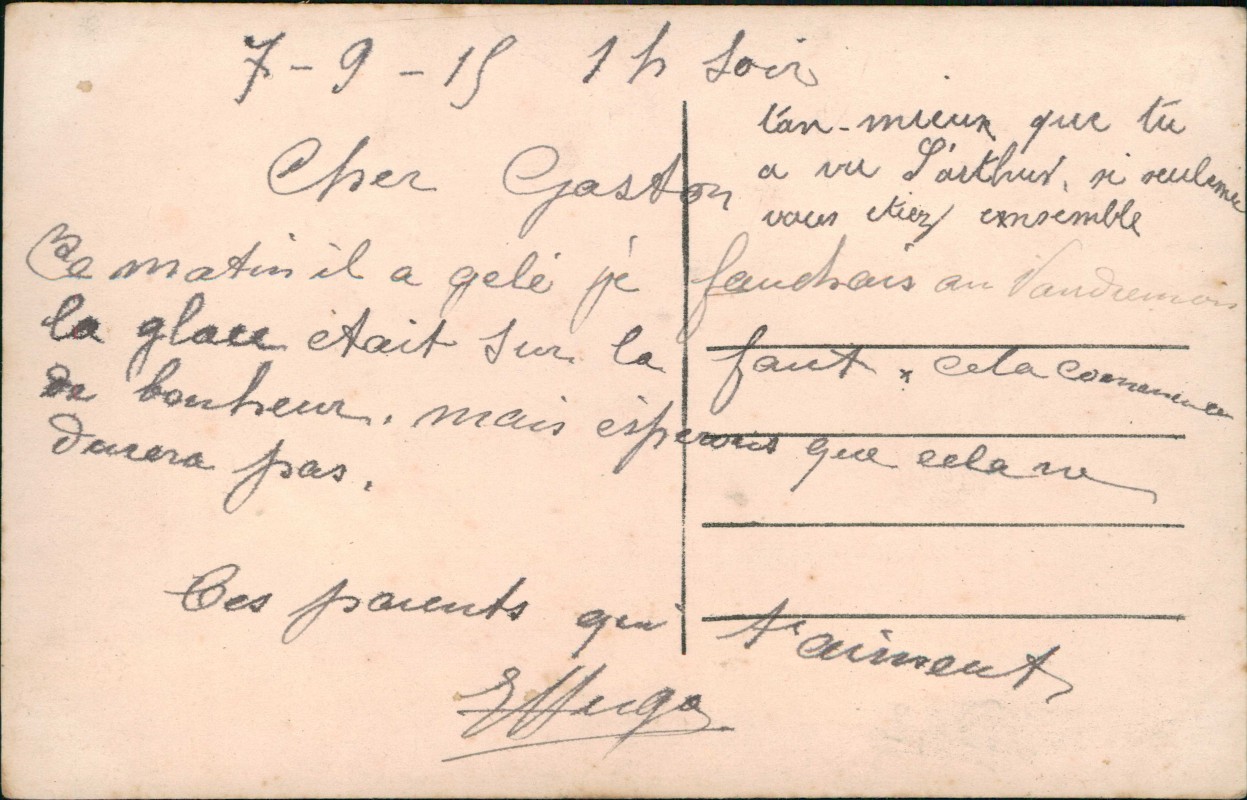 7-9-15 1h Soir
tan-mieux que tu
a vu L'arthur, si seulemen
vous étiez ensemble
Cher Gaston
Ce matin il a gelé je fauchais au Vaudremon
la glace était sur la faut, cela commence
de bonheur. mais ésperons que cela ne
durera pas.
Tes parents qui t'aiment
Hugo